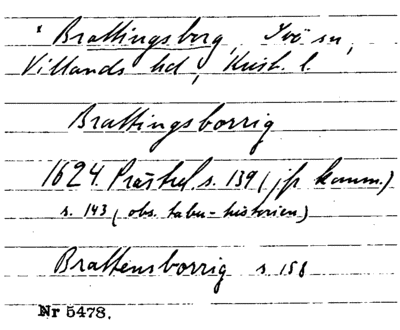 * Brattingsborg, Ivö sn,
Villands hd, Krist. l.
Brattingsborrig
1624. Prästrel. s. 139 (jfr komm.)
s. 143 (obs. tabu-historien)
Brattensborrig s. 158
Nr 5478.